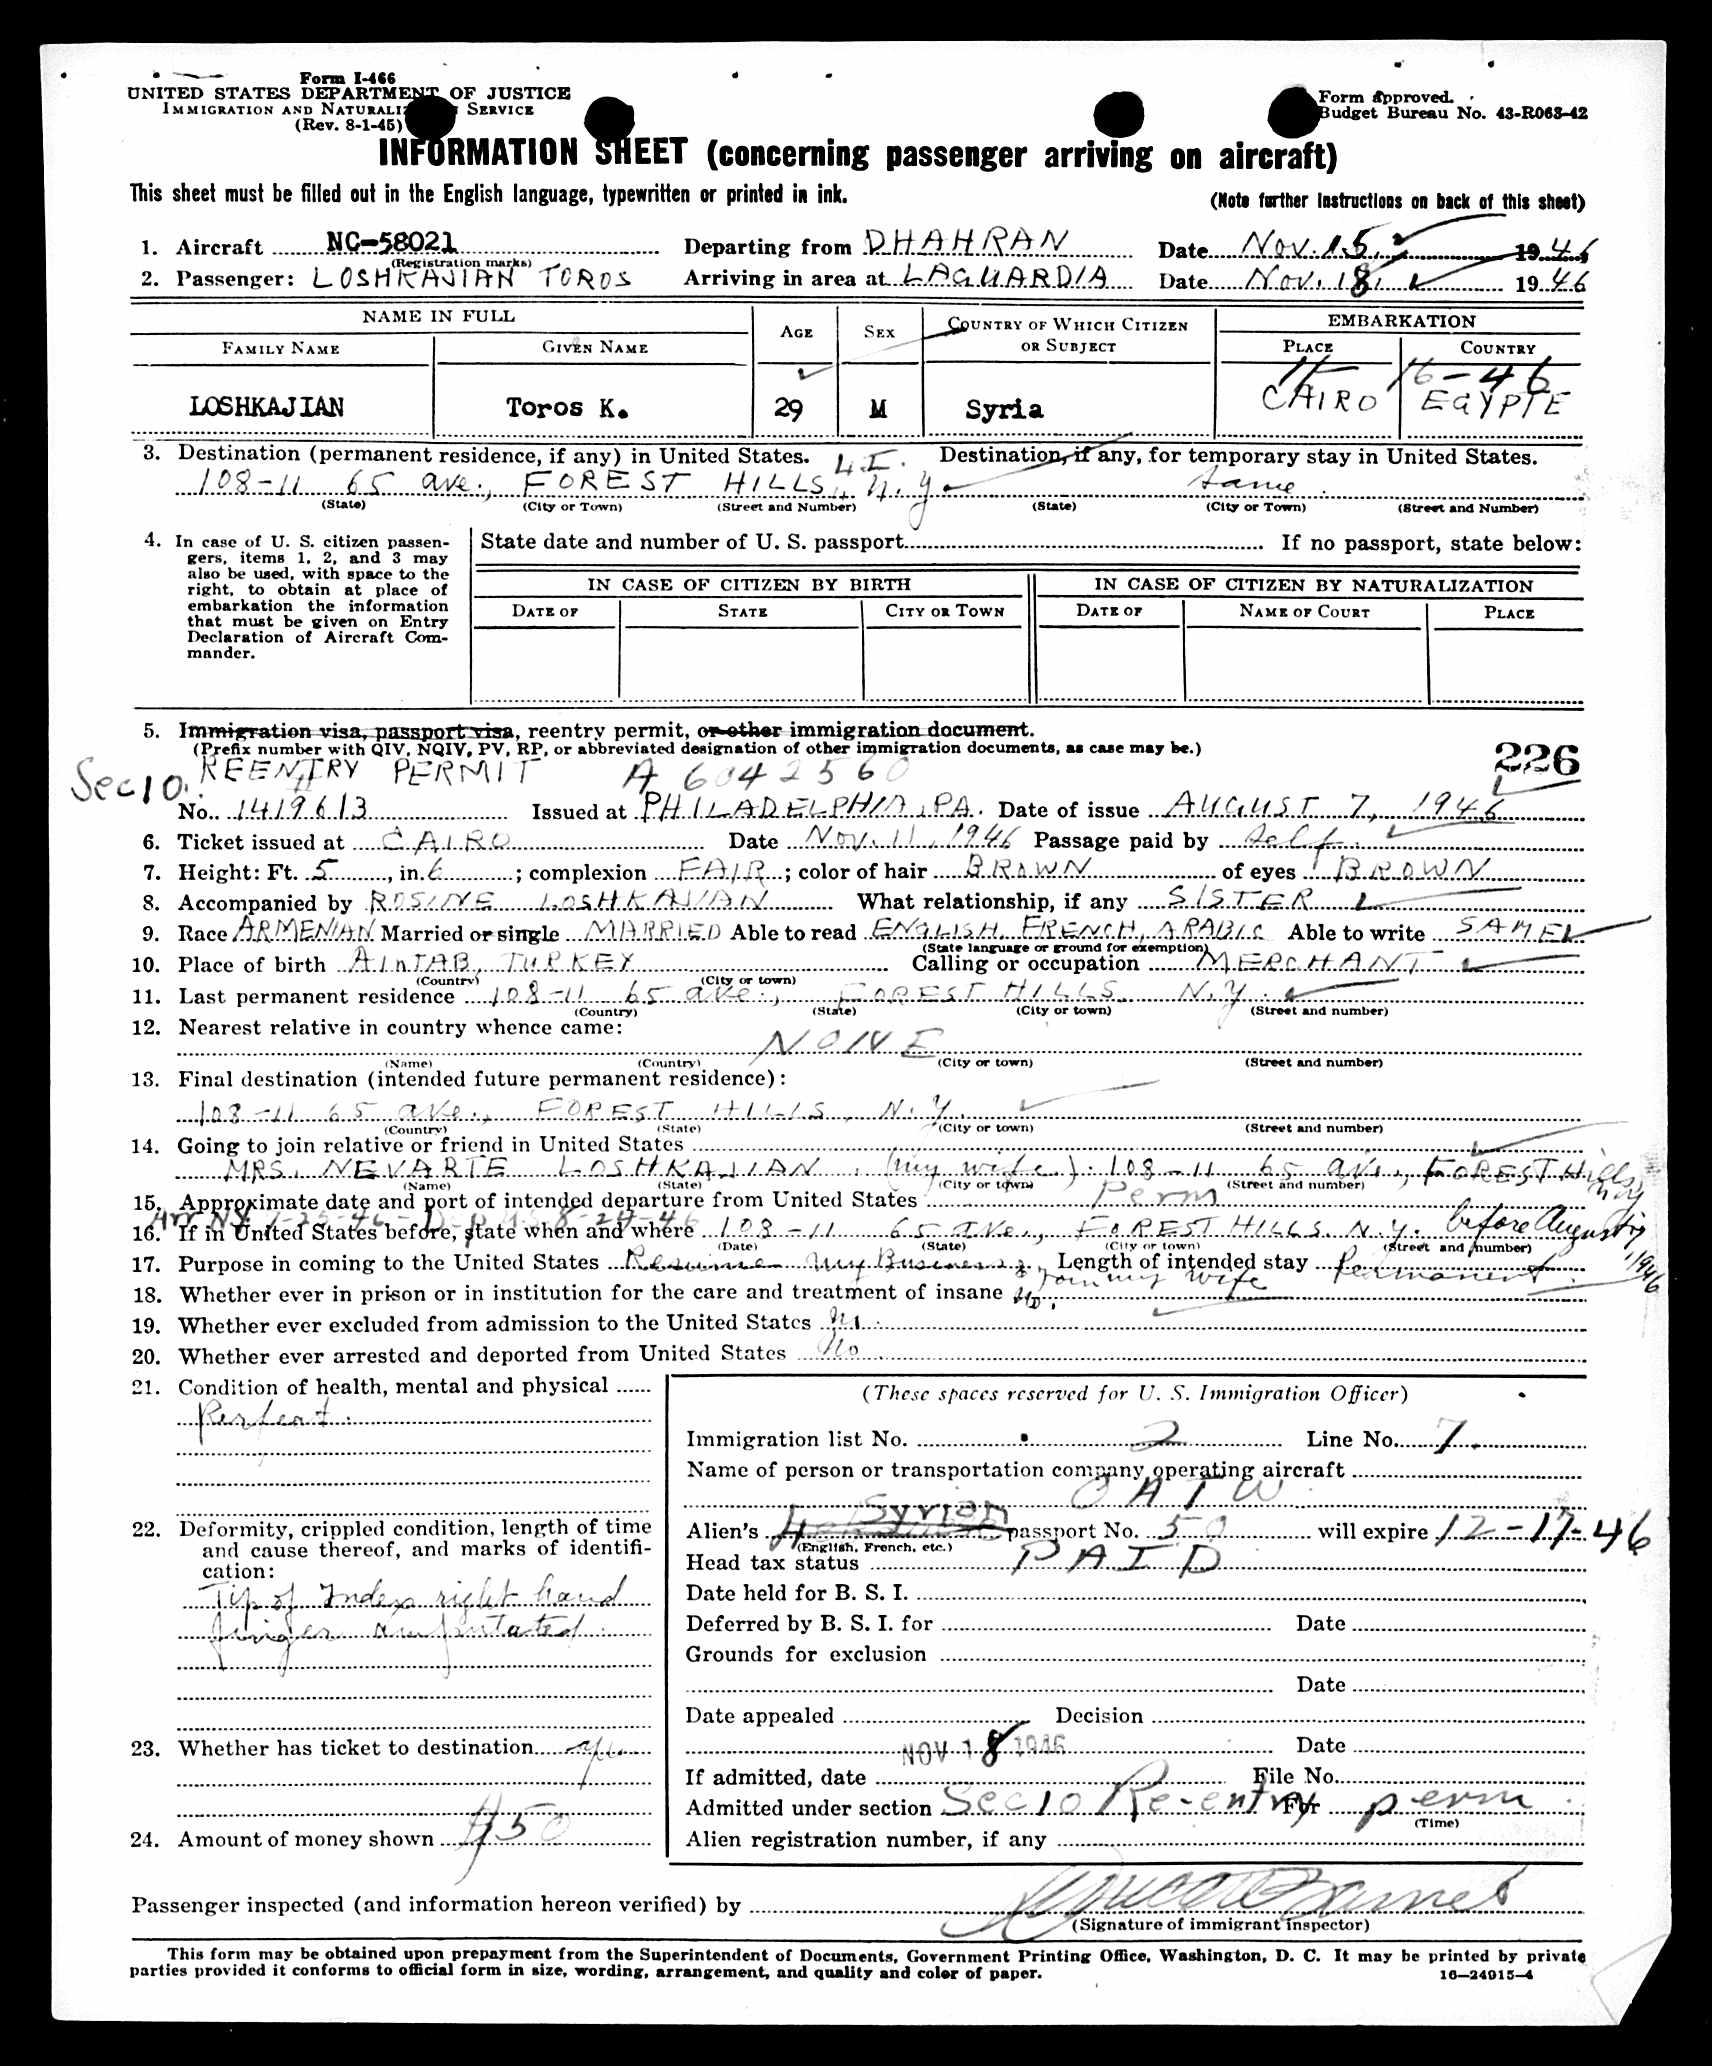 Form I-466
UNITED STATES DEPARTMENT OF JUSTICE
IMMIGRATION AND NATURALIZ SERVICE
(Rev. 8-1-45)
Form approved.
Budget Bureau No. 43-R063-42
INFORMATION SHEET (concerning passenger arriving on aircraft)
This sheet must be filled out in the English language, typewritten or printed in ink.
(Note further instructions on back of this sheet)
1. Aircraft NC-58021 Departing from DHAHRAN Date Nov. 15, 1946
(Registration marks)
2. Passenger: LOSHKAJIAN TOROS Arriving in area at LAGUARDIA Date Nov. 18, 1946
NAME IN FULL AGE SEX COUNTRY OF WHICH CITIZEN OR SUBJECT EMBARKATION
FAMILY NAME GIVEN NAME PLACE COUNTRY
11-16-46
LOSHKAJIAN Toros K. 29 M Syria CAIRO EGYPTE
3. Destination (permanent residence, if any) in United States. Destination, if any, for temporary stay in United States.
108-11 65 ave., FOREST HILLS, L.I. N.Y. same
(State) (City or Town) (Street and Number) (State) (City or Town) (Street and Number)
4. In case of U. S. citizen passen-
gers, items 1, 2, and 3 may
also be used, with space to the
right, to obtain at place of
embarkation the information
that must be given on Entry
Declaration of Aircraft Com-
mander.
State date and number of U. S. passport If no passport, state below:
IN CASE OF CITIZEN BY BIRTH IN CASE OF CITIZEN BY NATURALIZATION
DATE OF STATE CITY OR TOWN DATE OF NAME OF COURT PLACE
5. Immigration visa, passport visa, reentry permit, or other immigration document.
(Prefix number with QIV, NQIV, PV, RP, or abbreviated designation of other immigration documents, as case may be.)
226
Sec 10. REENTRY PERMIT A 6042560
No. 1419613 Issued at PHILADELPHIA, PA. Date of issue AUGUST 7, 1946
6. Ticket issued at CAIRO Date Nov. 11, 1946 Passage paid by self.
7. Height: Ft. 5, in. 6; complexion FAIR; color of hair BROWN of eyes BROWN
8. Accompanied by ROSINE LOSHKAJIAN What relationship, if any SISTER
9. Race ARMENIAN Married or single MARRIED Able to read ENGLISH, FRENCH, ARABIC Able to write SAME
(State language or ground for exemption)
10. Place of birth AINTAB, TURKEY Calling or occupation MERCHANT
(Country) (City or town)
11. Last permanent residence 108-11 65 ave., FOREST HILLS, N.Y.
(Country) (State) (City or town) (Street and number)
12. Nearest relative in country whence came:
NONE
(Name) (Country) (City or town) (Street and number)
13. Final destination (intended future permanent residence):
108-11 65 ave., FOREST HILLS, N.Y.
(Country) (State) (City or town) (Street and number)
14. Going to join relative or friend in United States
MRS. NEVARTE LOSHKAJIAN (my wife). 108-11 65 ave., FOREST Hills, N.Y.
(Name) (State) (City or town) (Street and number)
15. Approximate date and port of intended departure from United States Perm
16. If in United States before, state when and where 108-11 65 ave., FOREST HILLS, N.Y. before August 1946
(Date) (State) (City or town) (Street and number)
17. Purpose in coming to the United States Resume my Business & Join my wife Length of intended stay Permanent.
18. Whether ever in prison or in institution for the care and treatment of insane No.
19. Whether ever excluded from admission to the United States No.
20. Whether ever arrested and deported from United States No.
21. Condition of health, mental and physical
Perfect.
22. Deformity, crippled condition, length of time
and cause thereof, and marks of identifi-
cation:
Tip of Index right hand
finger amputated.
23. Whether has ticket to destination yes
24. Amount of money shown $50
(These spaces reserved for U. S. Immigration Officer)
Immigration list No. 2 Line No. 7.
Name of person or transportation company operating aircraft
OATW
Alien's Syrian passport No. 50 will expire 12-17-46
(English, French, etc.)
Head tax status PAID
Date held for B. S. I.
Deferred by B. S. I. for Date
Grounds for exclusion
Date
Date appealed Decision
NOV 18 1946 Date
If admitted, date File No.
Admitted under section Sec 10 Re-entry For perm
(Time)
Alien registration number, if any
Passenger inspected (and information hereon verified) by
(Signature of immigrant inspector)
This form may be obtained upon prepayment from the Superintendent of Documents, Government Printing Office, Washington, D. C. It may be printed by private
parties provided it conforms to official form in size, wording, arrangement, and quality and color of paper.
16-24915-4